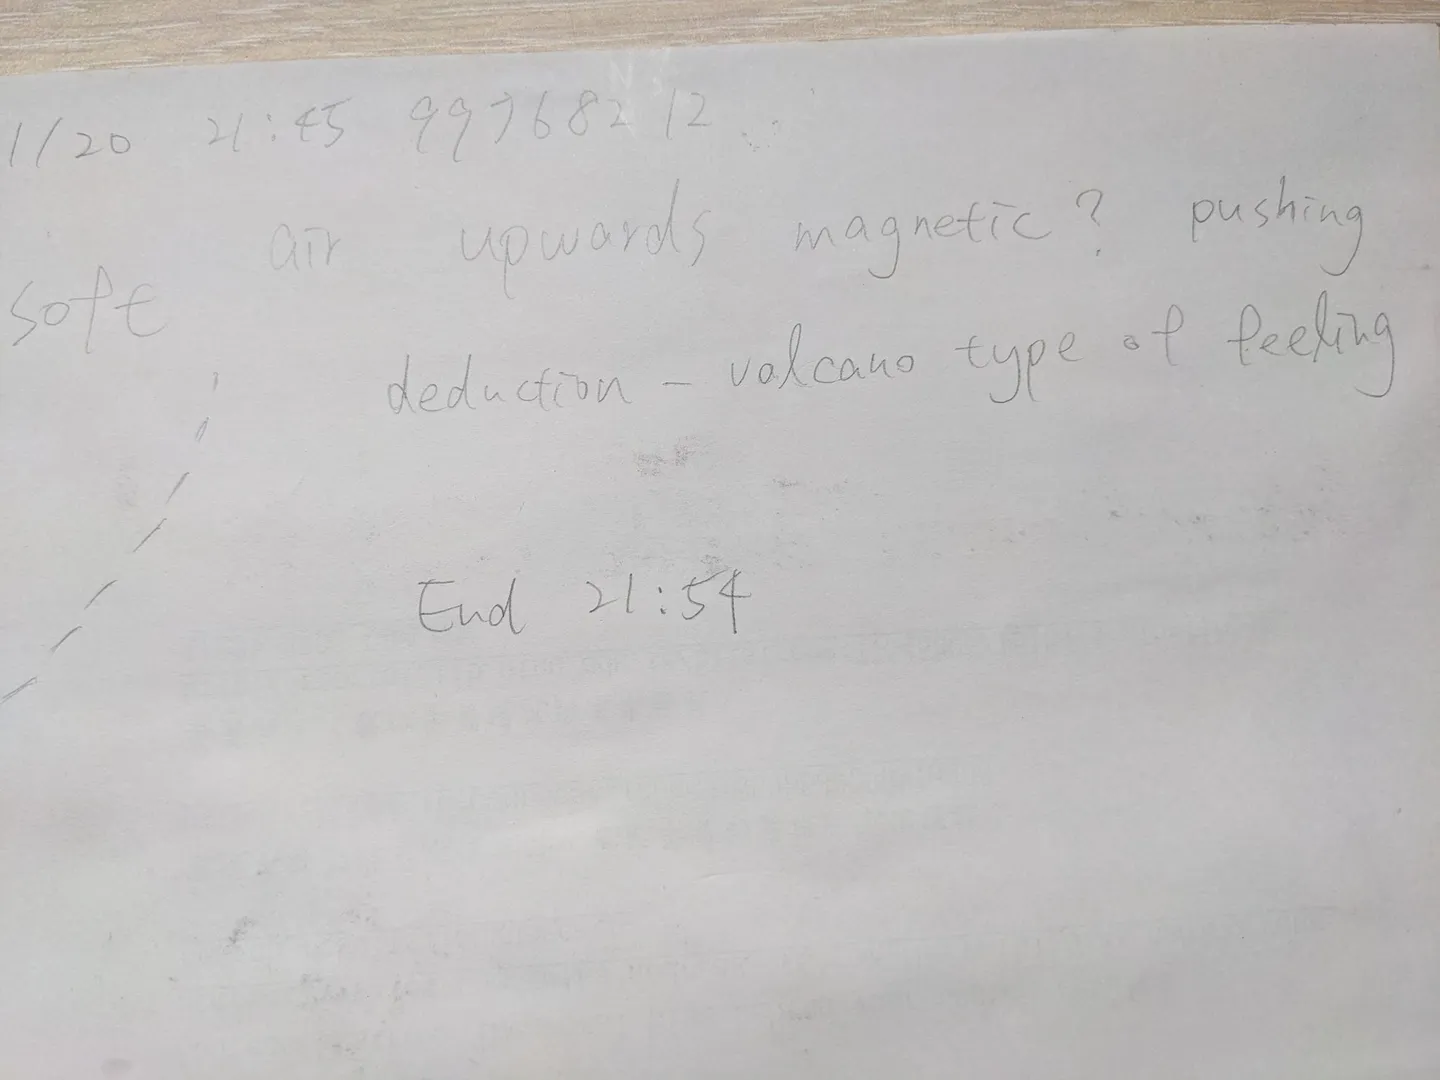 1/20 21:45 99768212
air upwards magnetic? pushing
soft
deduction - volcano type of feeling
End 21:54